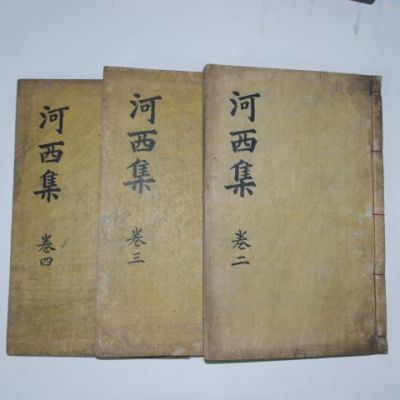 河西集
卷二
河西集
卷三
河西集
卷四